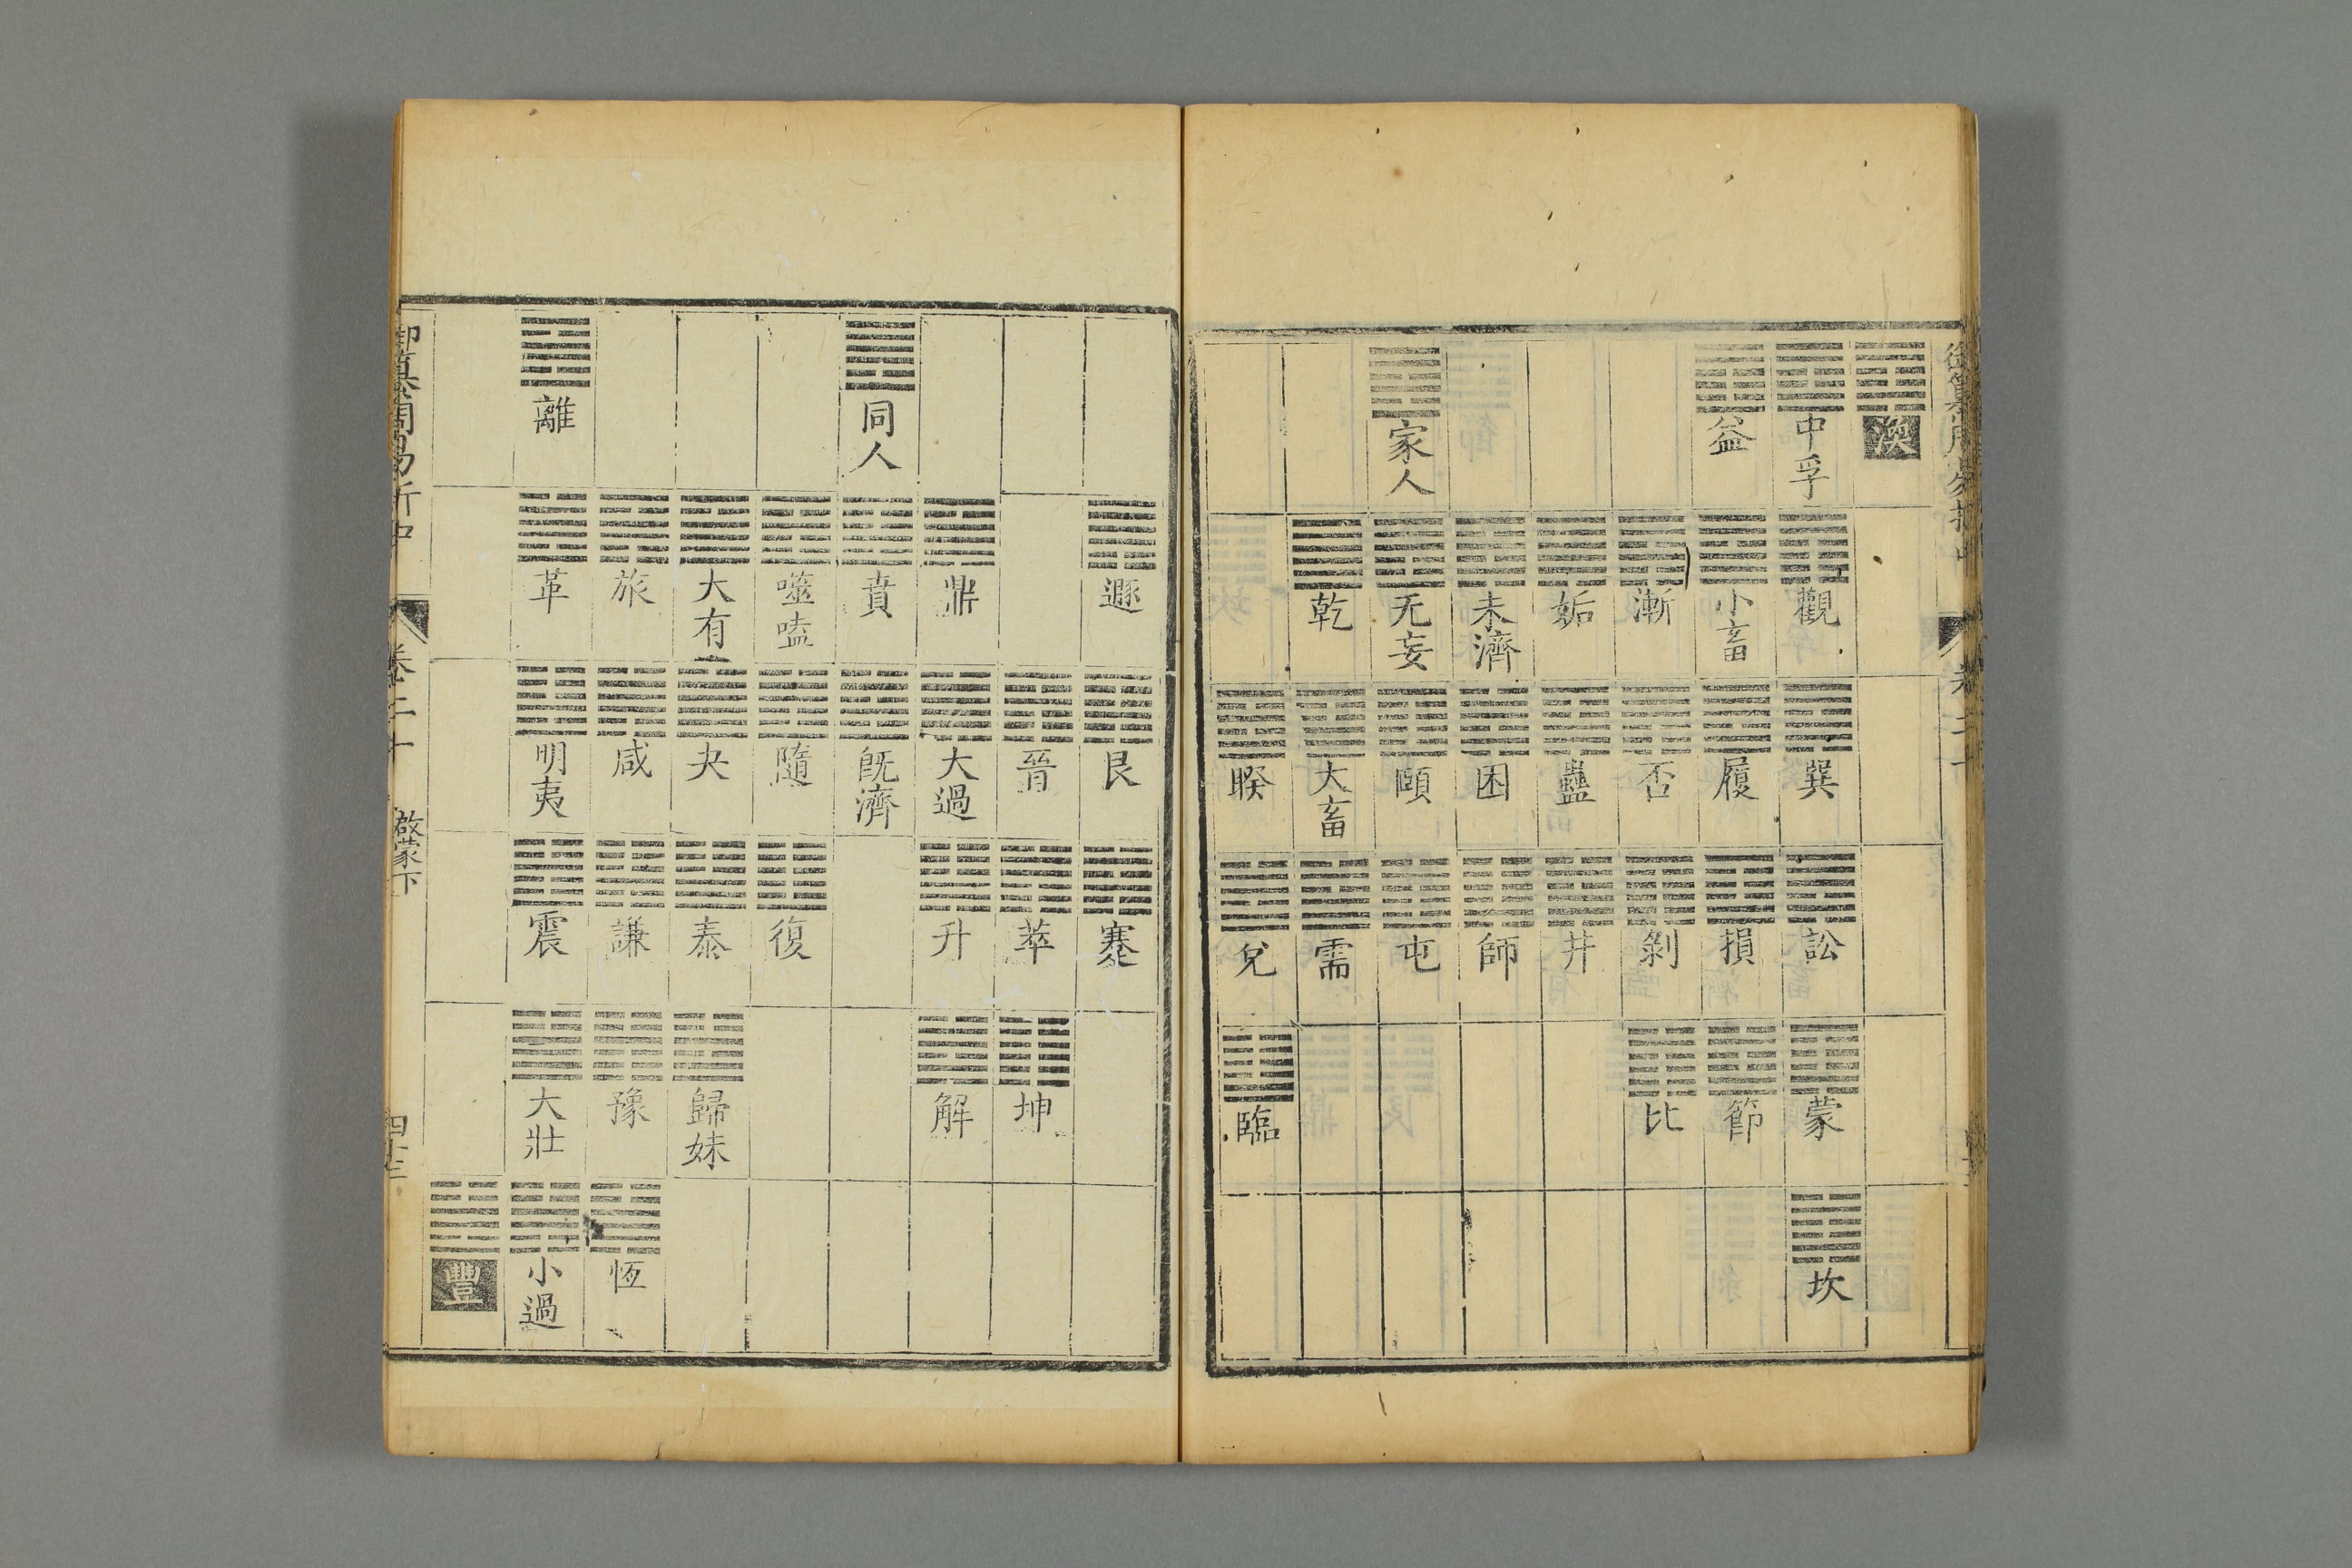 御纂周易折中 卷二十
渙
中孚 觀 巽 訟 蒙 坎
益 小畜 履 損 節
漸 否 剝 比
姤 蠱 井
未濟 困 師
家人 无妄 頤 屯
乾 大畜 需
睽 兌 臨
遯 艮 蹇
晉 萃 坤
鼎 大過 升 解
同人 賁 旣濟
噬嗑 隨 復
大有 夬 泰 歸妹
旅 咸 謙 豫 恆
離 革 明夷 震 大壯 小過
豐
御纂周易折中 卷二十 啟蒙下